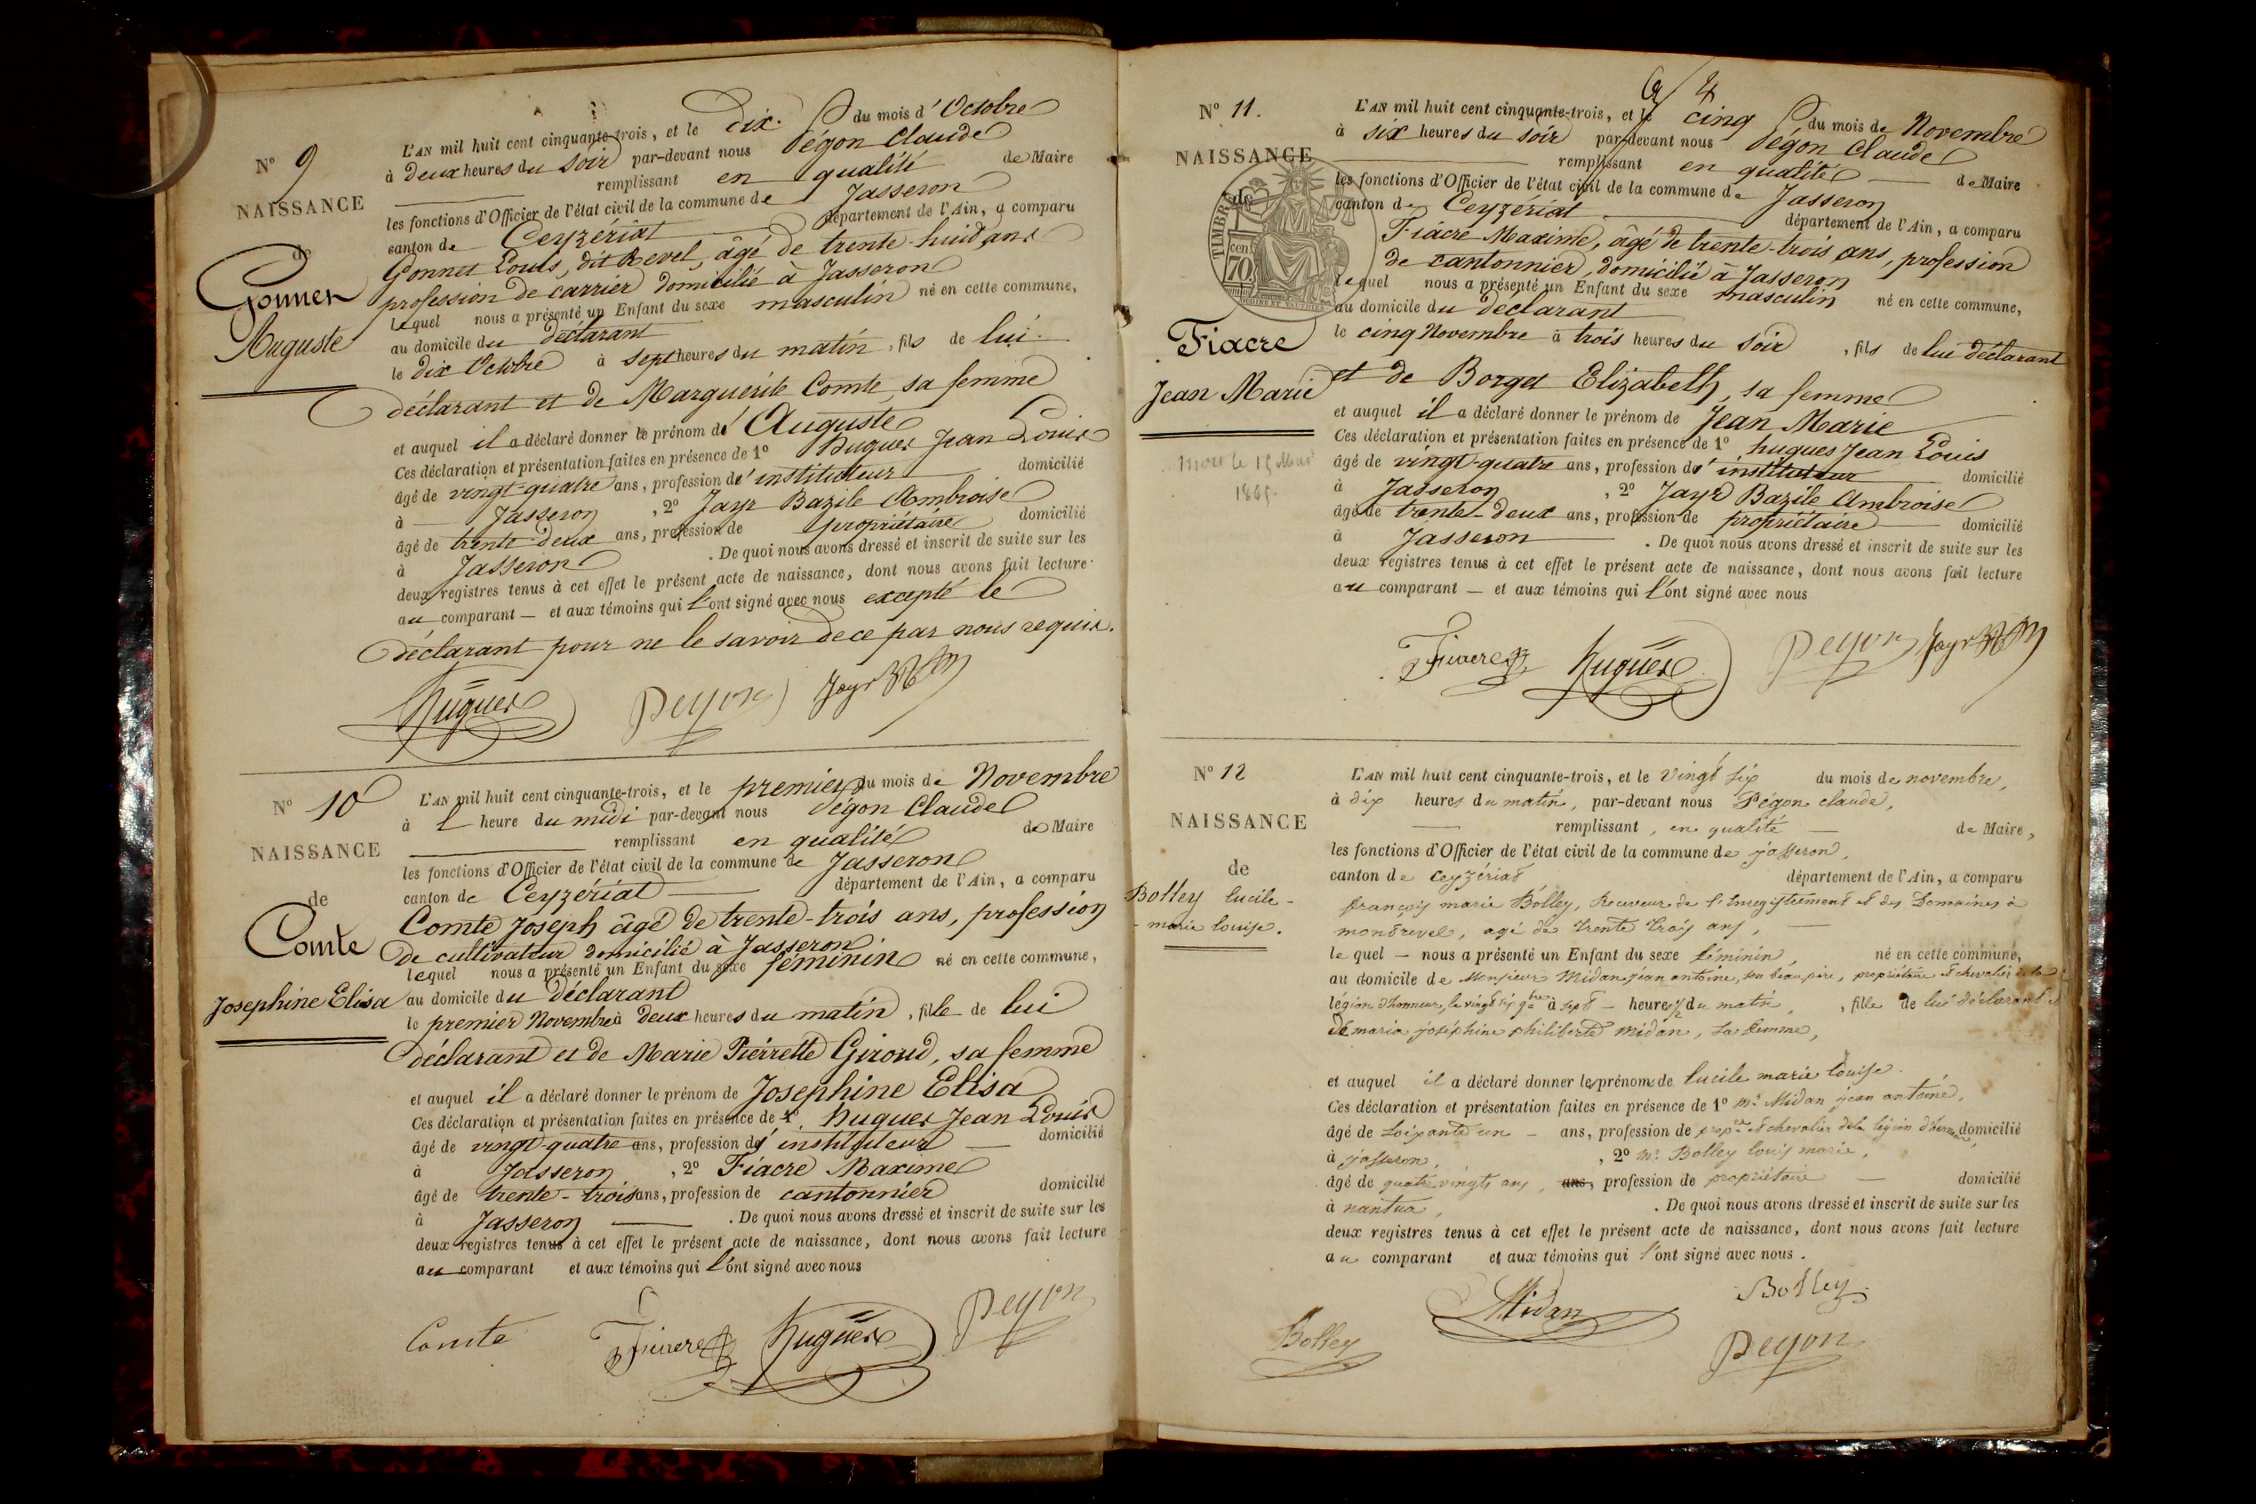 N° 9
NAISSANCE
de
Gonnet
Auguste
L'AN mil huit cent cinquante-trois, et le dix du mois d'Octobre
à deux heures du soir par-devant nous Pégon Claude
remplissant en qualité de Maire
les fonctions d'Officier de l'état civil de la commune de Jasseron
canton de Ceyzeriat département de l'Ain, a comparu
Gonnet Louis, dit Revel, âgé de trente-huit ans
profession de carrier domicilié à Jasseron
lequel nous a présenté un Enfant du sexe masculin né en cette commune,
au domicile du déclarant
le dix Octobre à sept heures du matin, fils de lui
déclarant et de Marguerite Comte, sa femme
et auquel il a déclaré donner le prénom d'Auguste
Ces déclaration et présentation faites en présence de 1° Hugues Jean Louis
âgé de vingt-quatre ans, profession d'instituteur domicilié
à Jasseron, 2° Jayr Bazile Ambroise
âgé de trente-deux ans, profession de propriétaire domicilié
à Jasseron. De quoi nous avons dressé et inscrit de suite sur les
deux registres tenus à cet effet le présent acte de naissance, dont nous avons fait lecture
au comparant — et aux témoins qui l'ont signé avec nous excepté le
déclarant pour ne le savoir de ce par nous requis.
Hugues Pegon Jayr
N° 10
NAISSANCE
de
Comte
Josephine Elisa
L'AN mil huit cent cinquante-trois, et le premier du mois de Novembre
à 1 heure du midi par-devant nous Pégon Claude
remplissant en qualité de Maire
les fonctions d'Officier de l'état civil de la commune de Jasseron
canton de Ceyzériat département de l'Ain, a comparu
Comte Joseph âgé de trente-trois ans, profession
de cultivateur domicilié à Jasseron
lequel nous a présenté un Enfant du sexe féminin né en cette commune,
au domicile du déclarant
le premier Novembre à deux heures du matin, fille de lui
déclarant et de Marie Pierrette Giroud, sa femme
et auquel il a déclaré donner le prénom de Josephine Elisa
Ces déclaration et présentation faites en présence de 1° Hugues Jean Louis
âgé de vingt-quatre ans, profession d'instituteur domicilié
à Jasseron, 2° Fiacre Maxime
âgé de trente-trois ans, profession de cantonnier domicilié
à Jasseron. De quoi nous avons dressé et inscrit de suite sur les
deux registres tenus à cet effet le présent acte de naissance, dont nous avons fait lecture
au comparant et aux témoins qui l'ont signé avec nous
Comte Fiacre Hugues Pegon
N° 11.
NAISSANCE
de
TIMBRE
70
cen
Fiacre
Jean Marie
mort le 15 Mars
L'AN mil huit cent cinquante-trois, et le cinq du mois de Novembre
à six heures du soir par-devant nous Pégon Claude
remplissant en qualité de Maire
les fonctions d'Officier de l'état civil de la commune de Jasseron
canton de Ceyzériat département de l'Ain, a comparu
Fiacre Maxime, âgé de trente-trois ans, profession
de cantonnier, domicilié à Jasseron
lequel nous a présenté un Enfant du sexe masculin né en cette commune,
au domicile du déclarant
le cinq Novembre à trois heures du soir, fils de lui déclarant
et de Borget Elizabeth, sa femme
et auquel il a déclaré donner le prénom de Jean Marie
Ces déclaration et présentation faites en présence de 1° hugues Jean Louis
âgé de vingt-quatre ans, profession d'instituteur domicilié
à Jasseron, 2° Jayr Bazile Ambroise
âgé de trente-deux ans, profession de propriétaire domicilié
à Jasseron. De quoi nous avons dressé et inscrit de suite sur les
deux registres tenus à cet effet le présent acte de naissance, dont nous avons fait lecture
au comparant — et aux témoins qui l'ont signé avec nous
Fiacre Hugues Pegon Jayr
N° 12
NAISSANCE
de
Bolley lucile-
-marie louise.
L'AN mil huit cent cinquante-trois, et le vingt six du mois de novembre,
à dix heures du matin, par-devant nous Pégon claude,
remplissant, en qualité de Maire,
les fonctions d'Officier de l'état civil de la commune de jasseron,
canton de ceyzériat département de l'Ain, a comparu
françois marie Bolley, Receveur de l'Enregistrement et des Domaines à
montrevel, agé de trente trois ans,
le quel — nous a présenté un Enfant du sexe féminin, né en cette commune,
au domicile de Monsieur Midan jean antoine, son beau père, propriétaire et chevalier de la
légion d'honneur, le vingt six 9bre à sept heures ½ du matin, fille de lui déclarant et
de maria joséphine philiberte Midan, sa femme,
et auquel il a déclaré donner les prénoms de lucile marie louise
Ces déclaration et présentation faites en présence de 1° Mr. Midan jean antoine,
âgé de soixante un — ans, profession de propre. et chevalier de la légion d'honneur, domicilié
à jasseron, 2° Mr. Bolley louis marie,
âgé de quatre vingts ans, ans, profession de propriétaire — domicilié
à nantua, . De quoi nous avons dressé et inscrit de suite sur les
deux registres tenus à cet effet le présent acte de naissance, dont nous avons fait lecture
au comparant et aux témoins qui l'ont signé avec nous.
Bolley Midan Bolley
Pegon